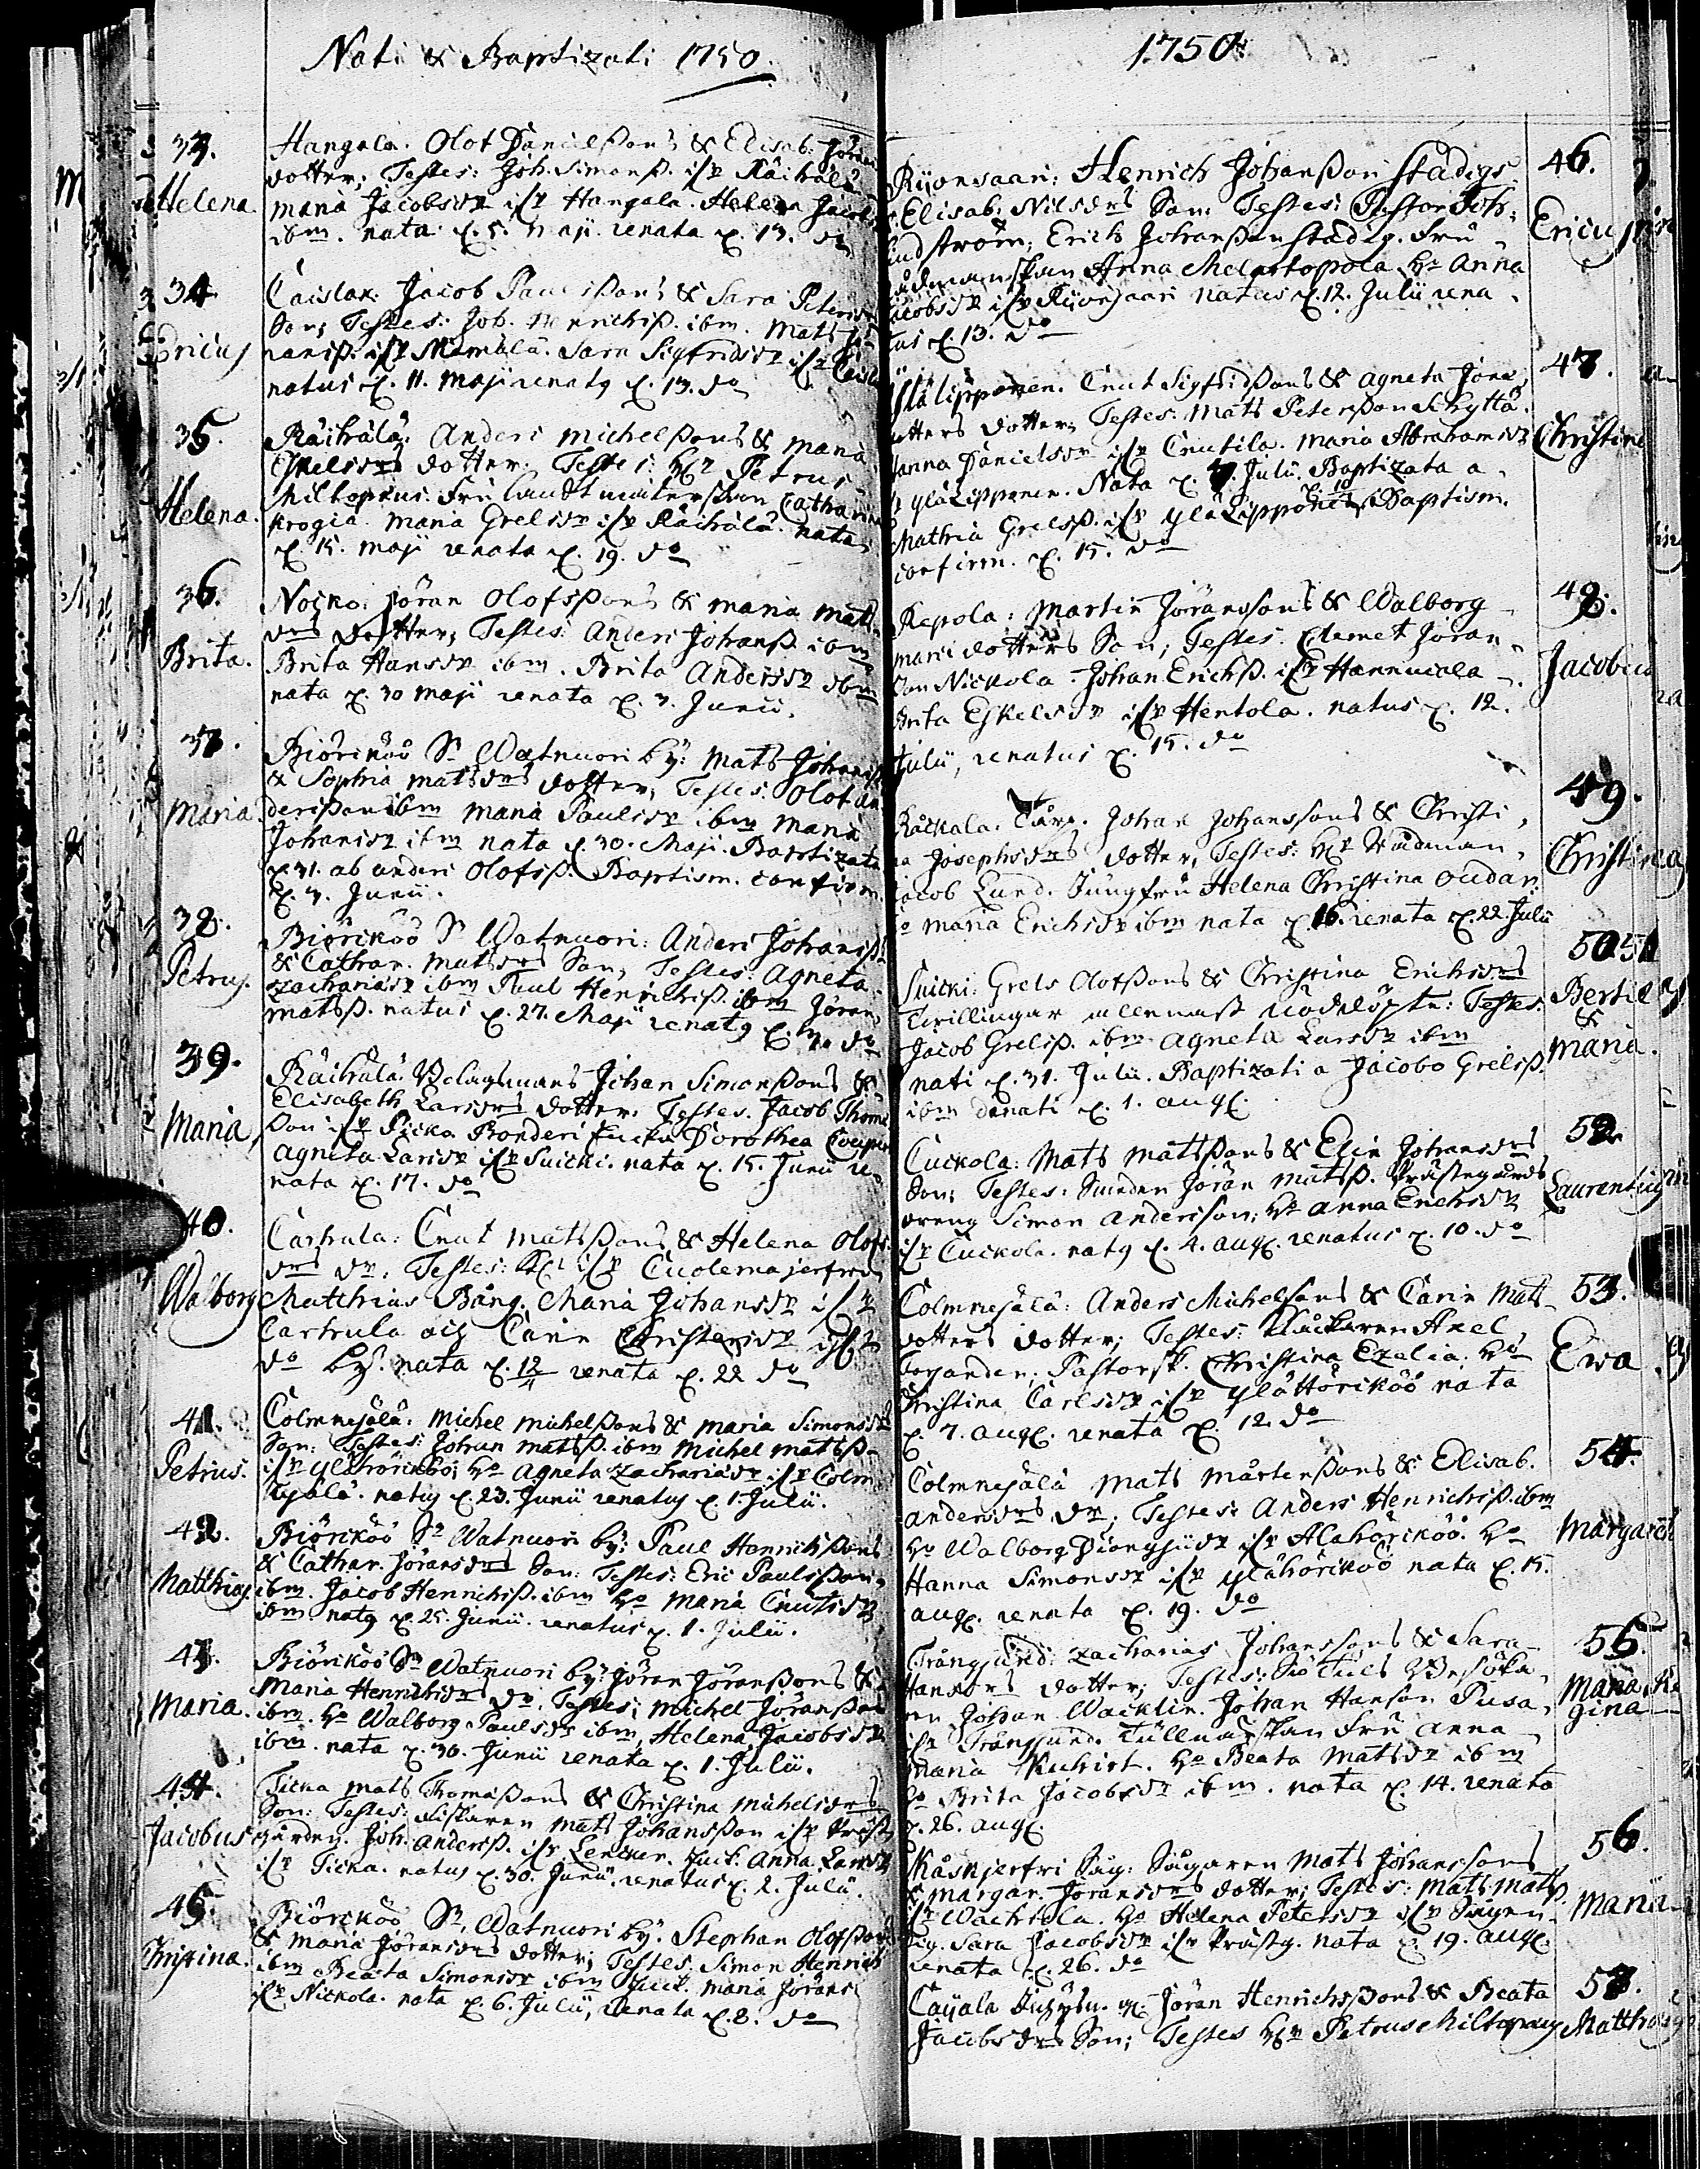 Nati & Baptizati 1750.
33.
Helena.
Hangala. Olof Danielßons & Elisab. Jöran
dotter; Testes: Joh. Simonß. ifr Räihälä
Maria Jacobsdr ifr Hangala. Helena Jacobs
ibm. nata d. 5. Maji renata d. 13. do
34.
Ericus
Caislax: Jacob Paulsßons & Sara Petersdr
Son; Testes: Joh. Henrichsß. ibm. Mats Jö-
ransß. ifr Mämälä. Sara Sigfridsdr ifr Caisla
natus d. 11. Maji renatus d. 13. do
35.
Helena.
Räihälä: Anders Michelßons & Maria
Eskelsdrs dotter. Testes: Hr Petrus
Miltopæus. Fru Landtmäterskan Catharina
Krogia. Maria Grelsdr ifr Räihälä. nata
d. 15. Maji renata d. 19. do
36.
Brita.
Nocko. Jöran Olofsßons & Maria Mats
drs dotter; Testes: Anders Johanß ibm
Brita Hansdr ibm. Brita Andersdr ibm
nata d. 30 Maji renata d. 3. Junii.
37.
Maria.
Biörcköö Sn Watnuori by: Mats Johansß
& Sophia Matsdrs dotter; Testes: Olof An-
dersßon ibm Maria Paulsdr ibm Maria
Johansdr ibm nata d. 30. Maji. Baptizata
d. 31. ab Anders Olofsß. Baptism. confirm.
d. 3. Junii.
38.
Petrus.
Biörcköö Sn Watnuori: Anders Johansß
& Cathar. Matsdrs Son; Testes: Agneta
Zachariasdr ibm Paul Henrichsß. ibm Jöran
Matsß. natus d. 27. Maji renatus d. 3. do
39.
Maria
Räihälä. Bolagsmans Johan Simonßons &
Elisabeth Larsdrs dotter. Testes. Jacob Thoms
ßon ifr Ticka. Bonders hustru Dorothea
Agneta Larsdr ifr Suicki. nata d. 15. Junii re-
nata d. 17. do
40.
Walborg
Carhula: Cnut Matsßons & Helena Olofs
drs dr; Testes: Hr ifr Cuolemajerfwi
Matthias Bång. Maria Johansdr ifr
Carhula och Carin Christersdr ifr
do by. nata d. 12/4 renata d. 22 do
41.
Petrus.
Colmnejälä: Michel Michelßons & Maria Simonsdr
Son: Testes: Johan Matsß. ibm Michel Matsß
ifr Ylähörickö; Ho Agneta Zachariasdr ifr Colm
nejälä. natus d. 23. Junii renatus d. 1. Julii.
42.
Matthias.
Biörcköö Sn Watnuori by: Paul Henrichßons
& Cathar. Jöransdrs Son: Testes: Eric Paulsßon
ibm. Jacob Henrichsß. ibm Ho Maria Cnutsdr
ibm natus d. 25. Junii. renatus d. 1. Julii.
43.
Maria.
Biörcköö Sn Watnuori by: Jöran Jöranßons &
Maria Henrichsdrs dr. Testes: Michel Jöranßon
ibm. Ho Walborg Paulsdr ibm, Helena Jacobsdr
ibm. nata d. 30. Junii renata d. 1. Julii.
44.
Jacobus
Ticka Mats Thomaßons & Christina Michelsdrs
Son: Testes: Fiskaren Mats Johansßon ifr Präst
gården. Joh. Andersß. ifr Leucken. hust. Anna Larsdr
ifr Ticka. natus d. 30. Junii. renatus d. 2. Julii.
45.
Christina.
Biörcköö Sn. Watnuori by. Stephan Olofßons
& Maria Jöransdrs dotter; Testes. Simon Henrich
ibm Beata Simonsdr ibm hust. Maria Jörans
ifr Nickola. nata d. 6. Julii, renata d. 8. do
1750.
46.
Ericus
Riionsaari: Henrich Johansßon Stadigs
Elisab. Nilsdrs Son: Testes: Pastor Joh.
Lindström; Erich Johansßon Stadig. Fru
rådmanskan Anna Melartopola Ho Anna
Jacobsdr ifr Riionsaari natus d. 12. Julii rena
tus d. 13. do
47.
Christina
Ylälipponen. Cnut Sigfridßons & Agneta Jöra
dotters dotter; Testes: Mats Petersßon Schytta.
Hanna Danielsdr ifr Cnutila. Maria Abrahamsdr
ifr Ylälipponen. Nata d. 9. Julii. Baptizata a
Mathia Grelsß. ifr Ylälipponen d. 10 Baptism.
confirm. d. 15. do
48.
Jacobus
Repola: Martin Jöransßons & Walborg
Marcidotters Son; Testes. Clemet Jöran
son Nickola. Johan Erichß. ifr Hannucala
Brita Eskelsdr ifr Hentola. natus d. 12.
Julii, renatus d. 15. do
49.
Christina
Råckala. Johan Johanssons & Christi
na Josephsdrs dotter, Testes: Hr Rådman
Jacob Lund. Jungfru Helena Christina Oudar.
Ho Maria Erichsdr ibm nata d. 16. renata d. 22. Julii
50. 51
Bertil
&
Maria.
Suicki: Grels Olofßons & Christina Erichsdrs
Twillingar allenast nöddöpte: Testes.
Jacob Grelsß. ibm. Agneta Larsdr ibm
nati d. 31. Julii. Baptizati a Jacobo Grelsß.
ibm denati d. 1. aug.
52.
Laurentius
Cuckola: Mats Matsßons & Elin Johansdrs
Son; Testes: Smeden Jöran Matsß. Prästegårds
dreng Simon Andersson; Ho Anna Erichsdr
ifr Cuckola. natus d. 4. aug. renatus d. 10. do
53.
Ewa
Colmnejälä: Anders Michelsons & Carin Mats
dotters dotter; Testes: klåckaren Axel
Pastorsk. Christina Ezelia; Ho
Christina Carlsdr ifr Ylähörickö nata
d. 7. aug. renata d. 12. do
54.
Margareth
Colmnejälä Mats Mårtensßons & Elisab.
Andersdrs dr; Testes: Anders Henrichsß. ibm
Ho Walborg ifr Alahörickö. Ho
Hanna Simonsdr ifr Ylähörickö nata d. 15.
aug. renata d. 19. do
55.
Maria Re
gina
Trångsund: Zacharias Johanssons & Sara
Hansdrs dotter; Testes: Siö Tuls Besöka
ren Johan Wacklin. Johan Hanson Pusa
ifr Trångsund. Tullnärskan Fru Anna
Maria Ho Beata Matsdr ibm
Ho Brita Jacobsdr ibm. nata d. 14. renata
d. 26. aug.
56.
Maria
Kåskjerfwi Såg: Sågaren Mats Johanssons
& Margar. Jöransdrs dotter; Testes: Mats Matsß.
ifr Wachtola. Ho Helena Petersdr ifr Sågen
Pig. Sara Jacobsdr ifr Prästg. nata d. 19. aug.
renata d. 26. do
57.
Matthæus
Caijala Jöran Henrichsßons & Beata
Jacobsdrs Son; Testes Hr Petrus Miltopæus